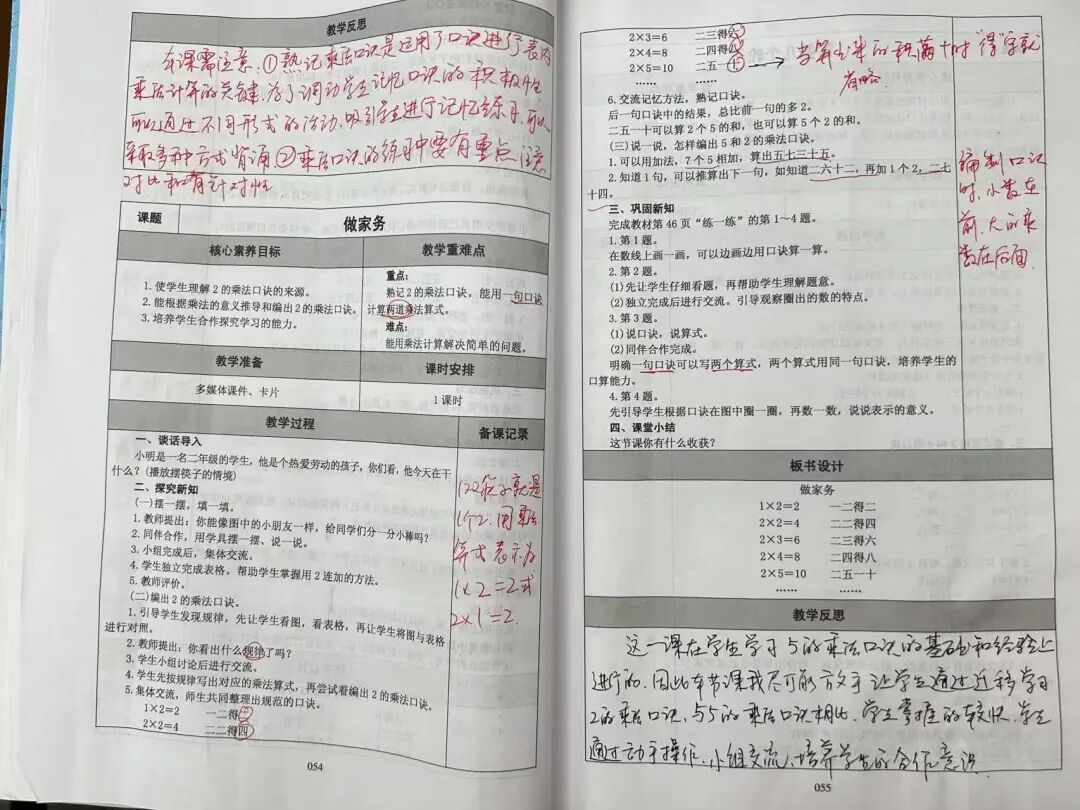 教学反思
本课需注意:①熟记乘法口诀是运用了口诀进行表内
乘法计算的关键.为了调动学生记忆口诀的积极性
可以通过不同形式的活动.吸引学生进行记忆练习.可以
采取多种方式背诵②乘法口诀的练习中要有重点注意
对比和有针对性.
课题 做家务
核心素养目标 教学重难点
1. 使学生理解2的乘法口诀的来源。
2. 能根据乘法的意义推导和编出2的乘法口诀。
3. 培养学生合作探究学习的能力。
重点:
熟记2的乘法口诀。能用一句口诀
计算两道乘法算式。
难点:
能用乘法计算解决简单的问题。
教学准备 课时安排
多媒体课件、卡片 1课时
教学过程 备课记录
一、谈话导入
小明是一名二年级的学生，他是个热爱劳动的孩子，你们看，他今天在干
什么？(播放摆筷子的情境)
二、探究新知
(一)摆一摆，填一填。
1. 教师提出：你能像图中的小朋友一样，给同学们分一分小棒吗？
2. 同伴合作，用学具摆一摆、说一说。
3. 小组完成后，集体交流。
4. 学生独立完成表格。帮助学生掌握用2连加的方法。
5. 教师评价。
(二)编出2的乘法口诀。
1. 引导学生发现规律，先让学生看图，看表格，再让学生将图与表格
进行对照。
2. 教师提出：你看出什么规律了吗？
3. 学生小组讨论后进行交流。
4. 学生先按规律写出对应的乘法算式，再尝试着编出2的乘法口诀。
5. 集体交流，师生共同整理出规范的口诀。
1×2=2 一二得二
2×2=4 二二得四
1双筷子就是
1个2.用乘法
算式表示为
1×2=2或
2×1=2.
054
2×3=6 二三得六
2×4=8 二四得八
2×5=10 二五一十
……  ……
当算出来的积满十时"得"字就
省略.
6. 交流记忆方法，熟记口诀。
后一句口诀中的结果，总比前一句的多2。
二五一十可以算2个5的和，也可以算5个2的和。
(三)说一说，怎样编出5和2的乘法口诀。
1. 可以用加法，7个5相加，算出五七三十五。
2. 知道1句，可以推算出下一句，如知道二六十二，再加1个2，二七
十四。
三、巩固新知
完成教材第46页“练一练”的第1~4题。
1. 第1题。
在数线上画一画，可以边画边用口诀算一算。
2. 第2题。
(1)先让学生仔细看题，再帮助学生理解题意。
(2)独立完成后进行交流。引导观察圈出的数的特点。
3. 第3题。
(1)说口诀，说算式。
(2)同伴合作完成。
明确一句口诀可以写两个算式，两个算式用同一句口诀，培养学生的
口算能力。
4. 第4题。
先引导学生根据口诀在图中圈一圈，再数一数，说说表示的意义。
四、课堂小结
这节课你有什么收获？
编制口诀
时,小数在
前,大的乘
数在后面.
板书设计
做家务
1×2=2 一二得二
2×2=4 二二得四
2×3=6 二三得六
2×4=8 二四得八
2×5=10 二五一十
……  ……
教学反思
这一课在学生学习5的乘法口诀的基础和经验上
进行的.因此本节课我尽可能放手让学生通过迁移学习
2的乘法口诀.与5的乘法口诀相比.学生掌握的较快.学生
通过动手操作.小组交流.培养学生的合作意识.
055